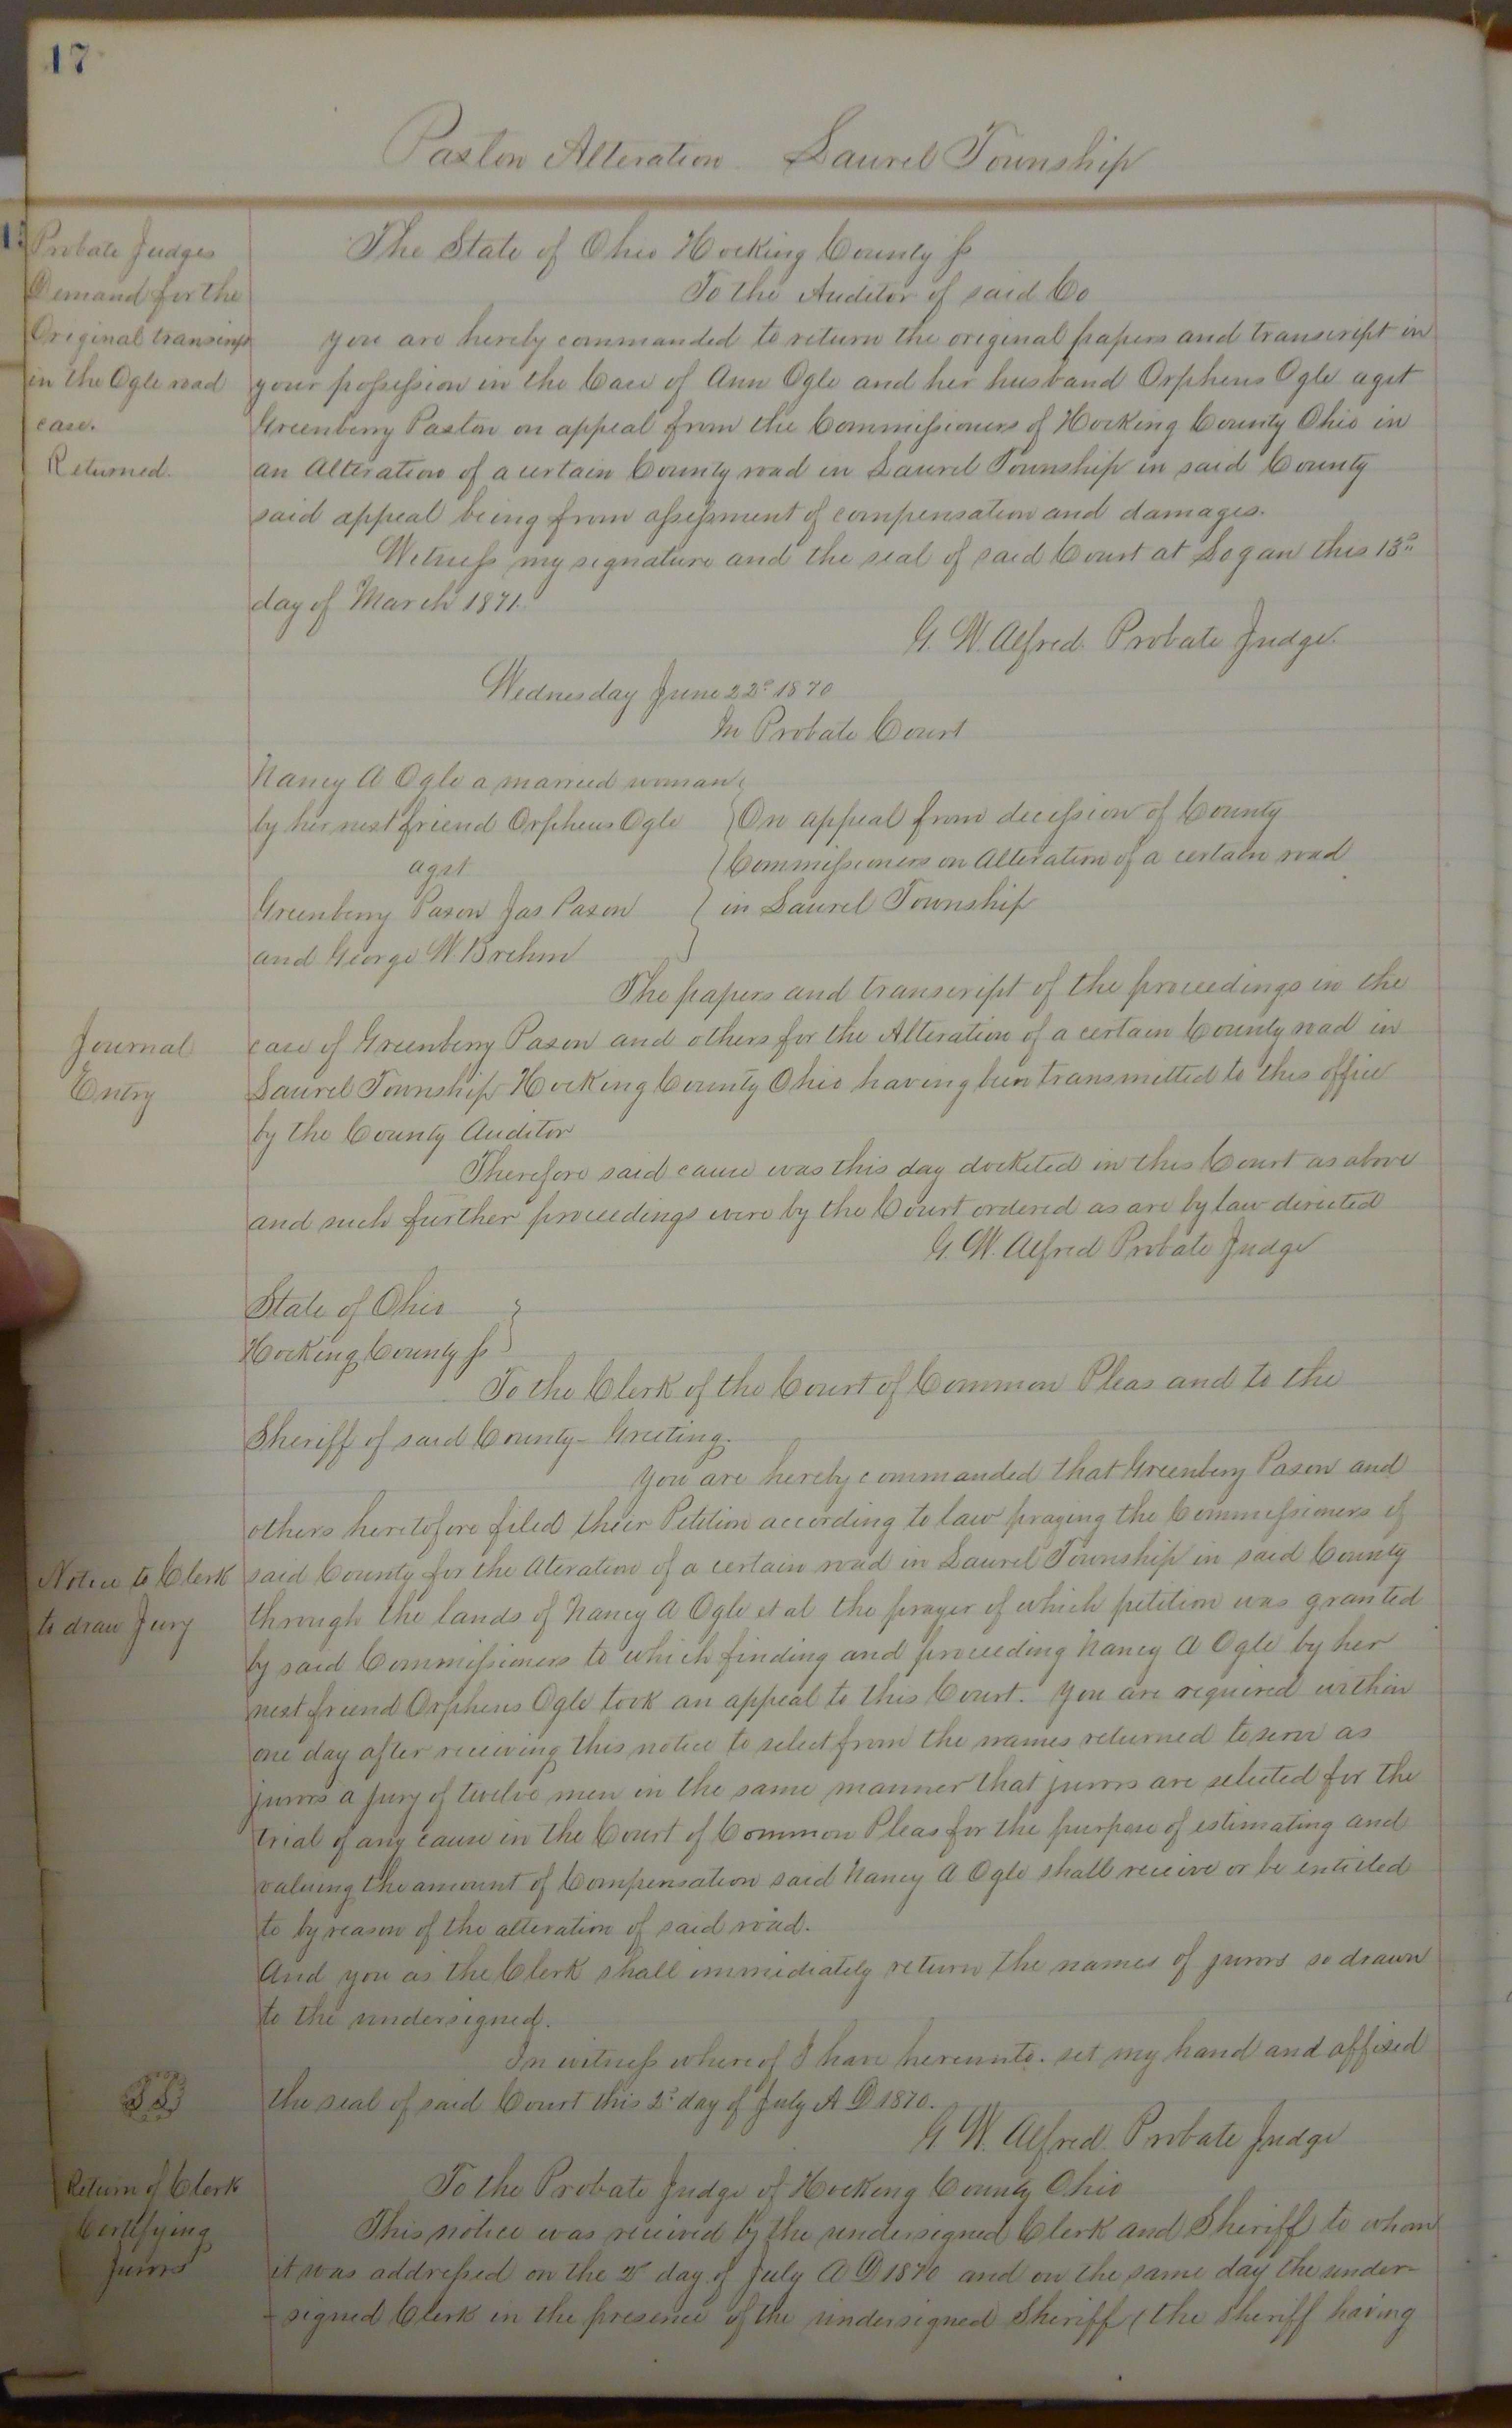 17
Paxton Alteration Laurel Township
Probate Judges
Demand for the
Original transcript
in the Ogle road
case.
Returned.
The State of Ohio Hocking County ss
To the Auditor of said Co
you are hereby commanded to return the original papers and transcript in
your possession in the Case of Ann Ogle and her husband Orpheus Ogle agst
Greenberry Paxton on appeal from the Commissioners of Hocking County Ohio in
an Alteration of a certain County road in Laurel Township in said County
said appeal being from assessment of compensation and damages.
Witness my signature and the seal of said Court at Logan this 13th
day of March 1871.
G. W. Alfred Probate Judge.
Wednesday June 22d 1870
In Probate Court
Nancy A Ogle a married woman
by her next friend Orpheus Ogle
agst
Greenberry Paxon Jas Paxon
and George W. Brehm
On appeal from decission of County
Commissioners on Alteration of a certain road
in Laurel Township
Journal
Entry
The papers and transcript of the proceedings in the
case of Greenberry Paxon and others for the Alteration of a certain County road in
Laurel Township Hocking County Ohio having been transmitted to this office
by the County Auditor
Therefore said cause was this day docketed in this Court as above
and such further proceedings were by the Court ordered as are by law directed
G. W. Alfred Probate Judge
State of Ohio
Hocking County ss
To the Clerk of the Court of Common Pleas and to the
Sheriff of said County - Greeting.
Notice to Clerk
to draw Jury
You are hereby commanded that Greenbery Paxon and
others heretofore filed their Petition according to law praying the Commissioners of
said County for the Ateration of a certain road in Laurel Township in said County
through the lands of Nancy A Ogle et al the prayer of which petition was granted
by said Commissioners to which finding and proceeding Nancy A Ogle by her
next friend Orpheus Ogle took an appeal to this Court. You are required within
one day after receiving this notice to select from the names returned to serve as
jurors a jury of twelve men in the same manner that jurors are selected for the
trial of any cause in the Court of Common Pleas for the purpose of estimating and
valuing the amount of Compensation said Nancy A Ogle shall receive or be entitled
to by reason of the alteration of said road.
And you as the Clerk shall immediately return the names of jurors so drawn
to the undersigned.
In witness whereof I have hereunto set my hand and affixed
the seal of said Court this 2d day of July A D 1870.
G W. Alfred Probate Judge
Return of Clerk
Certifying
Jurors
To the Probate Judge of Hocking County Ohio
This notice was received by the undersigned Clerk and Sheriff to whom
it was addressed on the 2d day of July A D 1870 and on the same day the under-
-signed Clerk in the presence of the undersigned Sheriff (the sheriff having